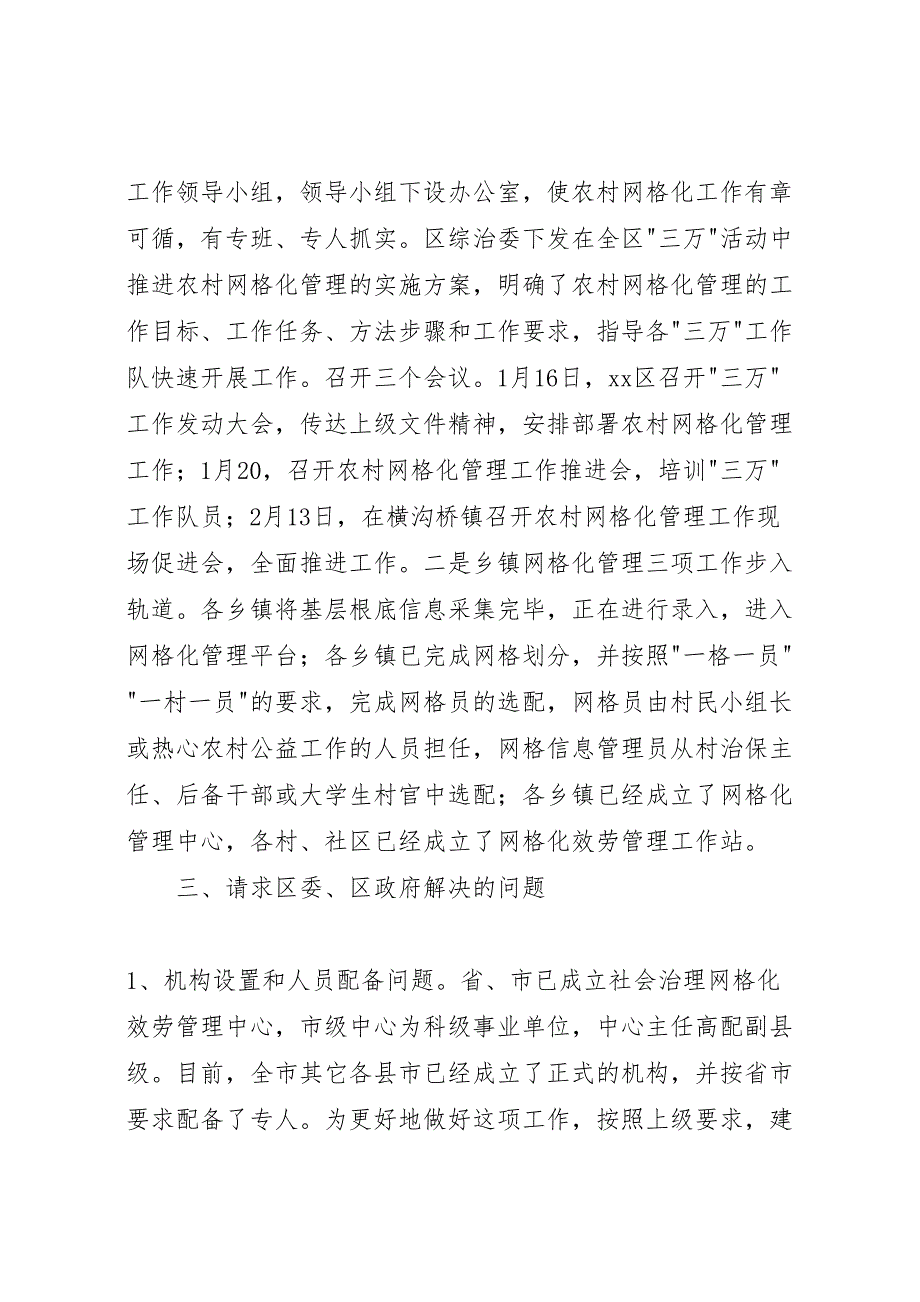 工作领导小组，领导小组下设办公室，使农村网格化工作有章
可循，有专班、专人抓实。区综治委下发在全区"三万"活动中
推进农村网格化管理的实施方案，明确了农村网格化管理的工
作目标、工作任务、方法步骤和工作要求，指导各"三万"工作
队快速开展工作。召开三个会议。1月16日，xx区召开"三万"
工作发动大会，传达上级文件精神，安排部署农村网格化管理
工作；1月20，召开农村网格化管理工作推进会，培训"三万"
工作队员；2月13日，在横沟桥镇召开农村网格化管理工作现
场促进会，全面推进工作。二是乡镇网格化管理三项工作步入
轨道。各乡镇将基层根底信息采集完毕，正在进行录入，进入
网格化管理平台；各乡镇已完成网格划分，并按照"一格一员"
"一村一员"的要求，完成网格员的选配，网格员由村民小组长
或热心农村公益工作的人员担任，网格信息管理员从村治保主
任、后备干部或大学生村官中选配；各乡镇已经成立了网格化
管理中心，各村、社区已经成立了网格化效劳管理工作站。
三、请求区委、区政府解决的问题
1、机构设置和人员配备问题。省、市已成立社会治理网格化
效劳管理中心，市级中心为科级事业单位，中心主任高配副县
级。目前，全市其它各县市已经成立了正式的机构，并按省市
要求配备了专人。为更好地做好这项工作，按照上级要求，建